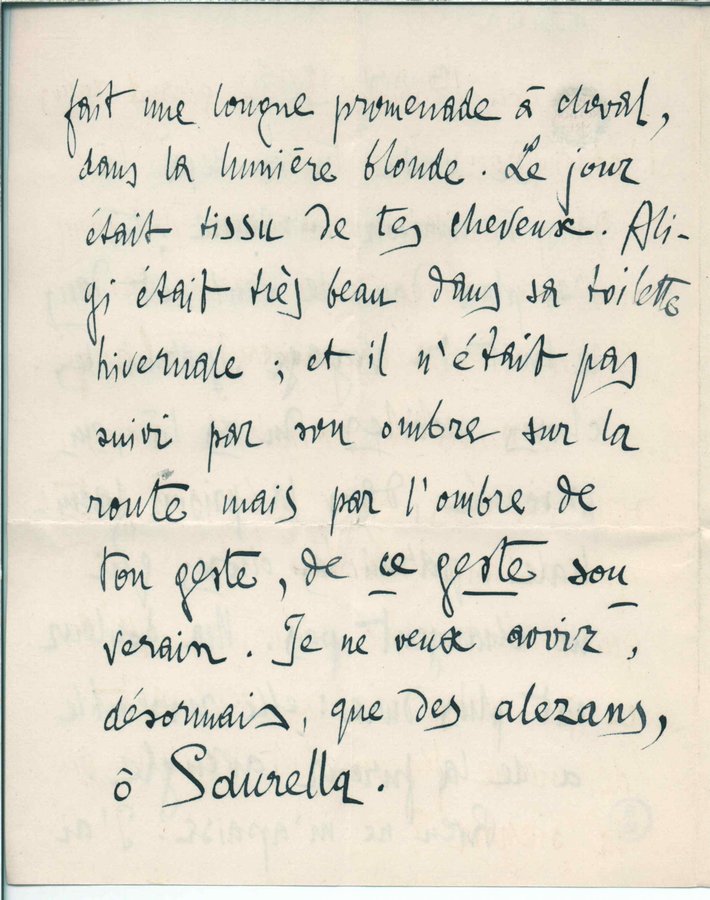 fait une longue promenade à cheval,
dans la lumière blonde. Le jour
était tissu de tes cheveux. Ali-
gi était très beau dans sa toilette
hivernale ; et il n'était pas
suivi par son ombre sur la
route mais par l'ombre de
ton geste, de ce geste sou
verain. Je ne veux avoir,
désormais, que des alezans,
ô Saurella.